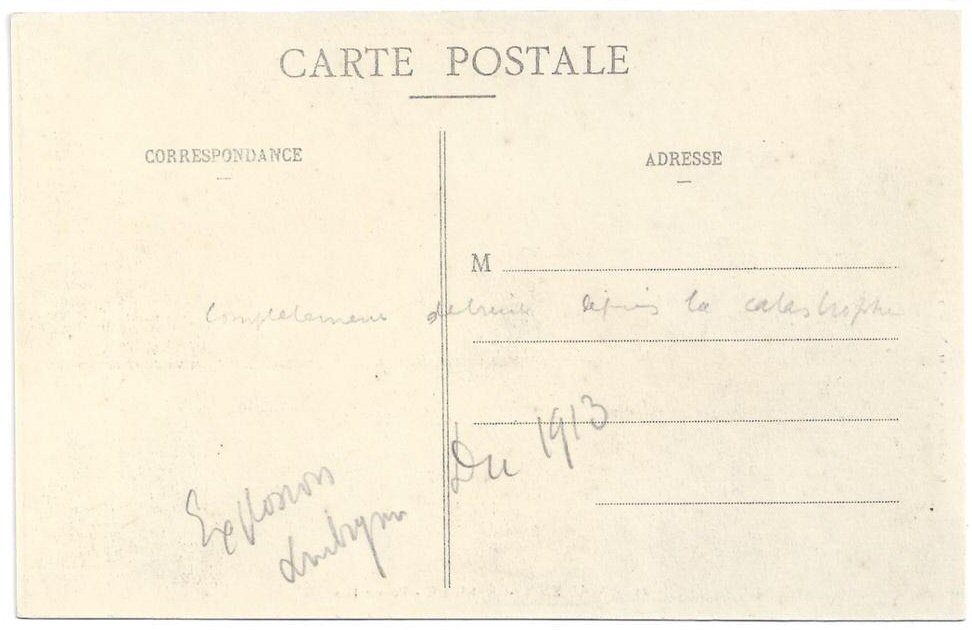 CARTE POSTALE
CORRESPONDANCE
ADRESSE
M
Completement detruit depuis la catastrophe
Du 1913
Explosion